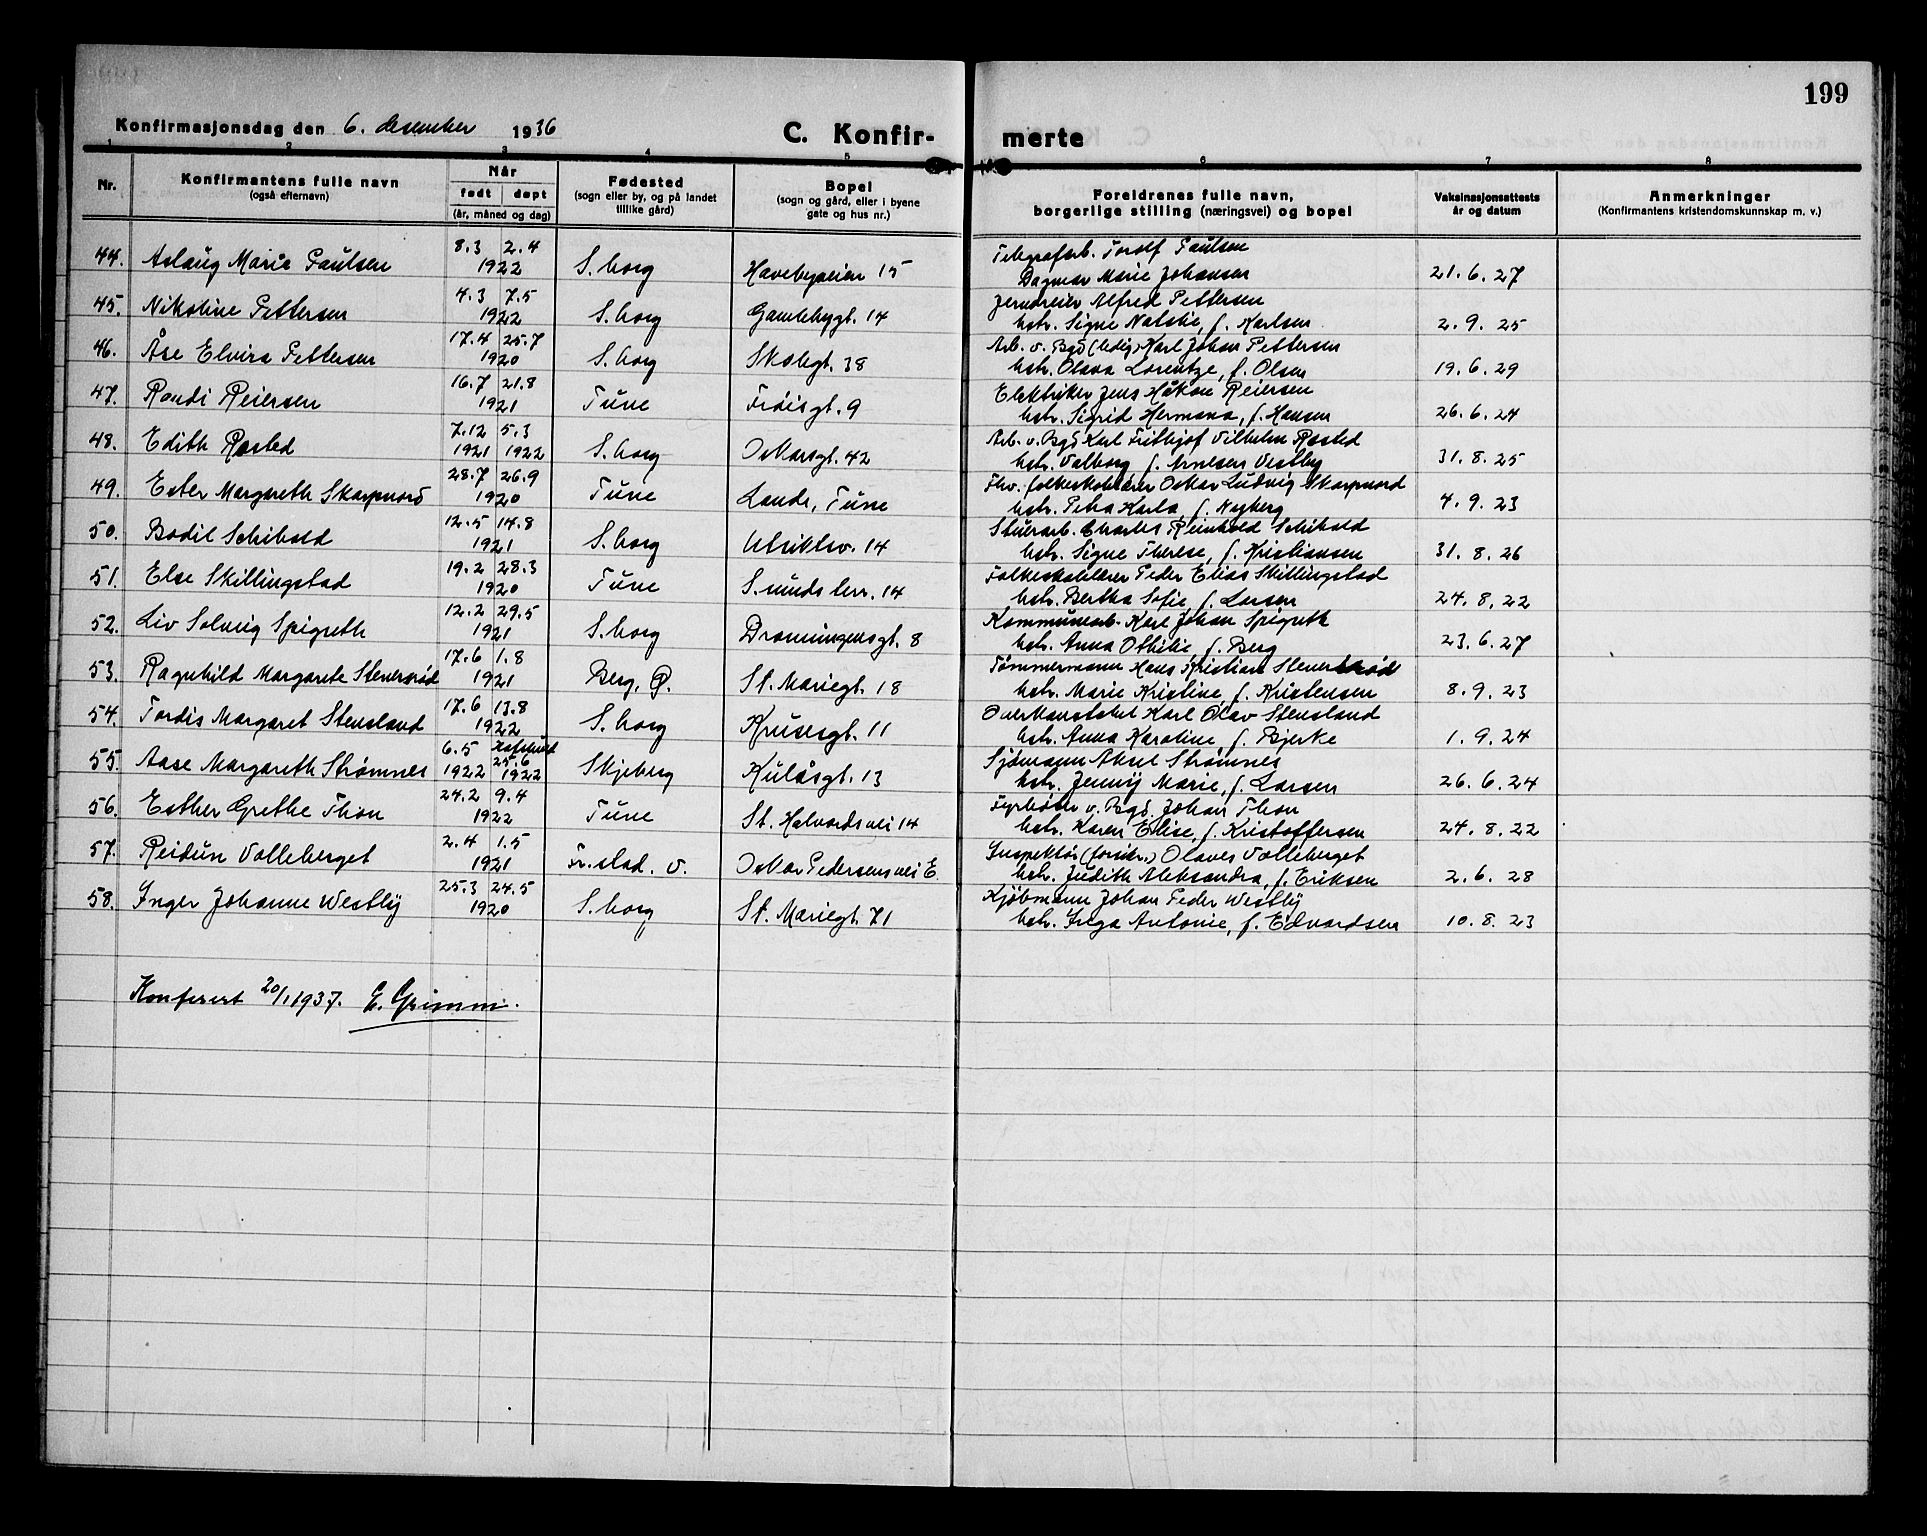 199
Konfirmasjonsdag den 6. desember 1936
C. Konfir-
merte
1 2 3 4 5 6 7 8
Nr.
Konfirmantens fulle navn
(også efternavn)
Når
født døpt
(år, måned og dag)
Fødested
(sogn eller by, og på landet
tillike gård)
Bopel
(sogn og gård, eller i byene
gate og hus nr.)
Foreldrenes fulle navn,
borgerlige stilling (næringsvei) og bopel
Vaksinasjonsattests
år og datum
Anmerkninger
(Konfirmantens kristendomskunnskap m. v.)
8.3 2.4 Telegrafarb. Torolf Paulsen
44. Aslaug Marie Paulsen 1922 S.borg Havebyveien 15 Dagmar Marie Johansen 21.6.27
4.3 7.5 Jerndreier Alfred Pettersen
45. Nikoline Pettersen 1922 S.borg Gamlebygt. 14 hstr. Signe Natalie, f. Karlsen 2.9.25
17.4 25.7 Arb. v. Bgd (ledig) Karl Johan Pettersen
46. Åse Elvira Pettersen 1920 S.borg Skolegt. 38 hstr. Olava Lorentze, f. Olsen 19.6.29
16.7 21.8 Elektriker Jens Håkon Reiersen
47. Randi Reiersen 1921 Tune Frøisgt. 9 hstr. Sigrid Hermana, f. Hansen 26.6.24
7.12 5.3 Arb. v. Bgd Karl Frithjof Vilhelm Røsted
48. Edith Røsted 1921 1922 S.borg Oskarsgt. 42 hstr. Valborg f. Arnesen Vestby 31.8.25
28.7 26.9 Fhv. folkeskolelærer Oskar Ludvig Skarpnord
49. Ester Margareth Skarpnord 1920 Tune Lande, Tune hstr. Petra Karla, f. Nyberg 4.9.23
12.5 14.8 Stuerarb. Charles Reinhold Schibold
50. Bodil Schibold 1921 S.borg Utsiktsv. 14 hstr. Signe Therese, f. Kristiansen 31.8.26
19.2 28.3 Folkeskolelærer Peder Elias Skillingstad
51. Else Skillingstad 1920 Tune S.undsterr. 14 hstr. Bertha Sofie, f. Larsen 24.8.22
12.2 29.5 Kommunearb. Karl Johan Spigseth
52. Liv Solveig Spigseth 1921 S.borg Dronningensgt. 8 hstr. Anna Othilie, f. Berg 23.6.27
17.6 1.8 Tømmermann Hans Kristian Stenersrød
53. Ragnhild Margarete Stenersrød 1921 Berg, Ø. St. Mariegt. 18 hstr. Marie Kristine, f. Kristensen 8.9.23
17.6 13.8 Overkonstabel Karl Olav Stensland
54. Tordis Margaret Stensland 1922 S.borg Krusesgt. 11 hstr. Anna Karoline, f. Bjerke 1.9.24
6.5 Hafslund Sjømann Aksel Strømnes
25.6
55. Aase Margareth Strømnes 1922 1922 Skjeberg Kulåsgt. 13 hstr. Jenny Marie, f. Larsen 26.6.24
24.2 9.4 Fyrbøter v. Bgd. Johan Thon
56. Esther Grethe Thon 1922 Tune St. Halvardsvei 14 hstr. Karen Elise, f. Kristoffersen 24.8.22
2.4 1.5 Inspektør (forsikr.) Olaves Volleberget
57. Reidun Volleberget 1921 Fr.stad. v. Oskar Pedersensvei E. hstr. Judith Aleksandra, f. Eriksen 2.6.28
25.3 24.5 Kjøbmann Johan Peder Westby
58. Inger Johanne Westby 1920 S.borg St. Mariegt. 71 hstr. Inga Antonie, f. Edvardsen 10.8.23
Konferert 20/1 1937. E. Grimm.